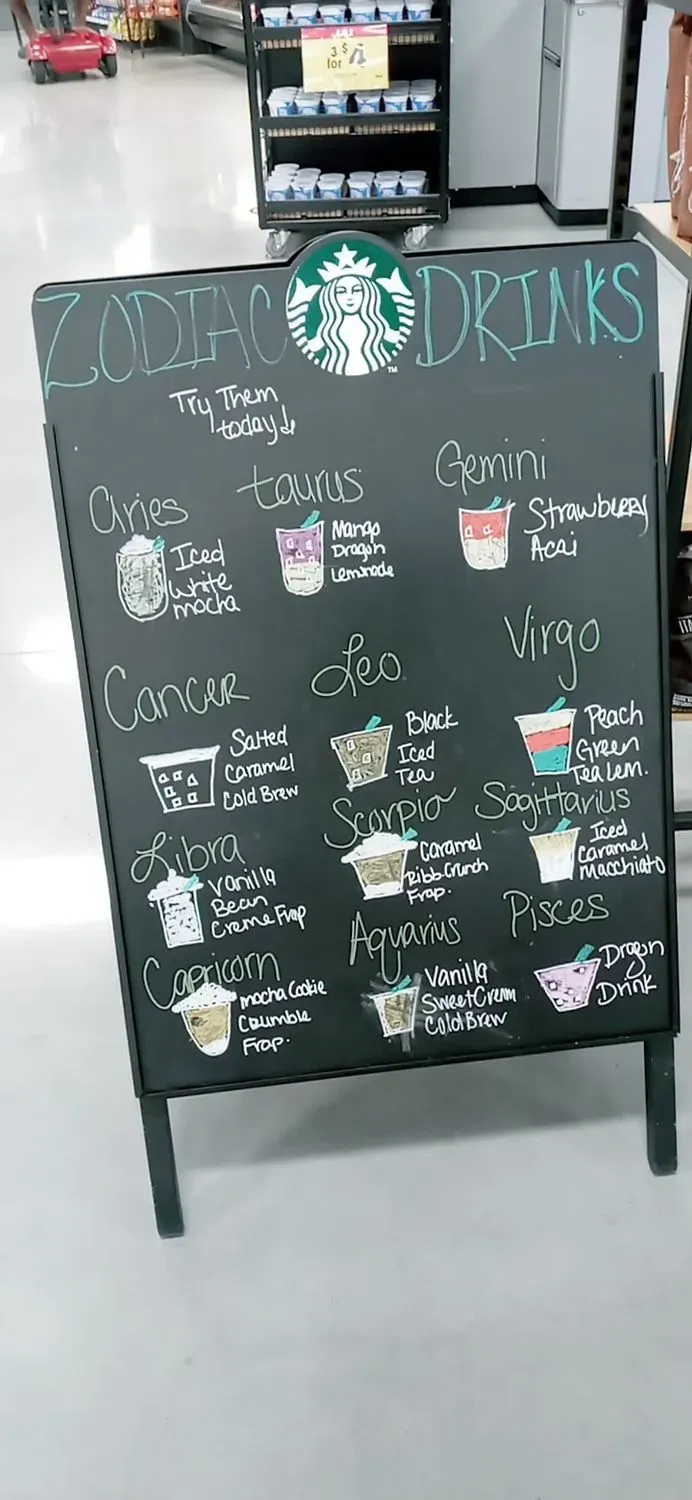 3 $
for 4
ZODIAC DRINKS
TM
Try Them
today!
Aries
Iced
White
mocha
taurus
Mango
Dragon
Lemonade
Gemini
Strawberry
Acai
Cancer
Salted
Caramel
Cold Brew
Leo
Black
Iced
Tea
Virgo
Peach
Green
Tea Lem.
Libra
Vanilla
Bean
Creme Frap
Scorpio
Caramel
Ribb Crunch
Frap.
Sagittarius
Iced
Caramel
Macchiato
Capricorn
mocha Cookie
Crumble
Frap.
Aquarius
Vanilla
Sweet Cream
Cold Brew
Pisces
Dragon
Drink